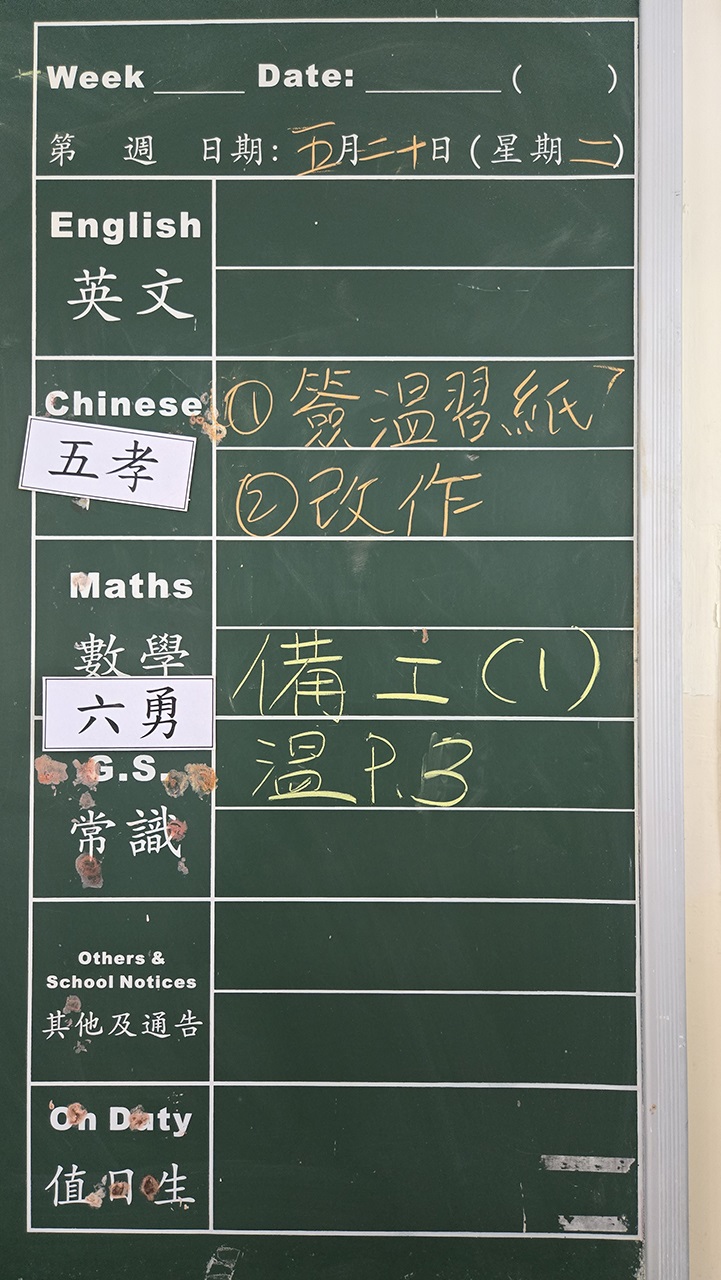 Week _____ Date: ________ (      )
第 週 日期: 五月二十日 (星期二)
English
英文
Chinese ① 簽溫習紙
五孝
② 改作
Maths
數學 備工(1)
六勇
G.S. 溫P.3
常識
Others &
School Notices
其他及通告
On Duty
值日生